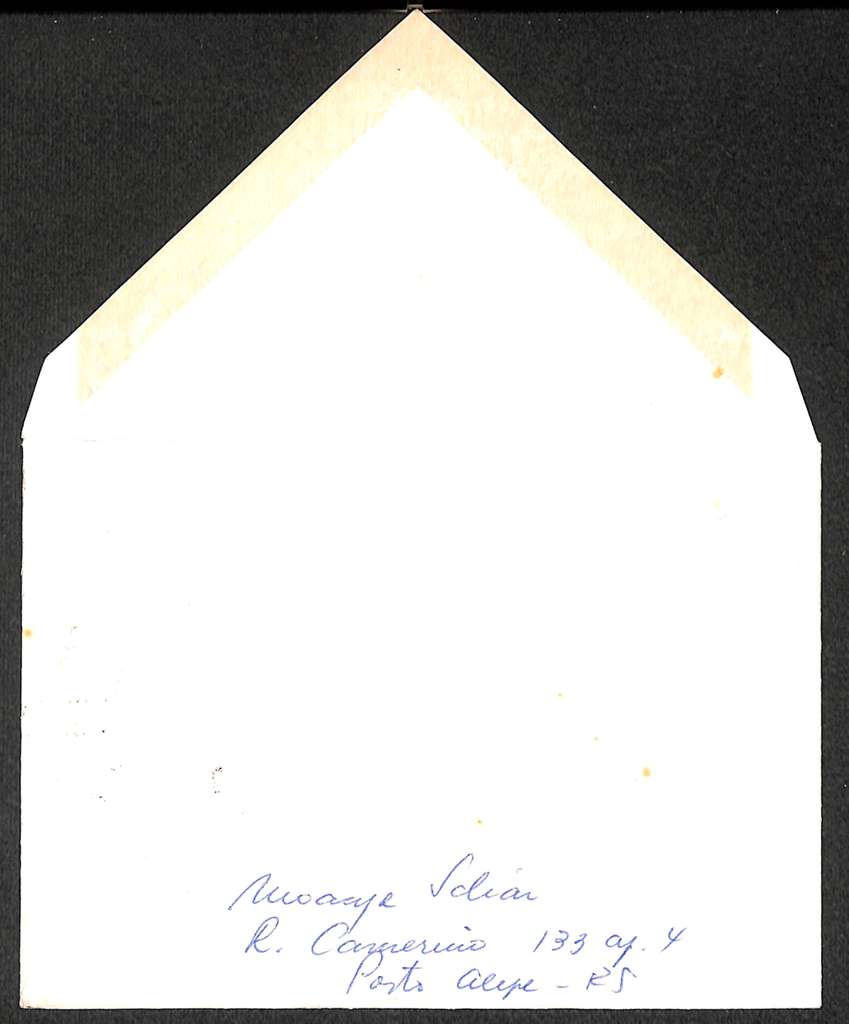 Moacyr Scliar
R. Camerino 133 ap. 4
Porto Alegre - RS